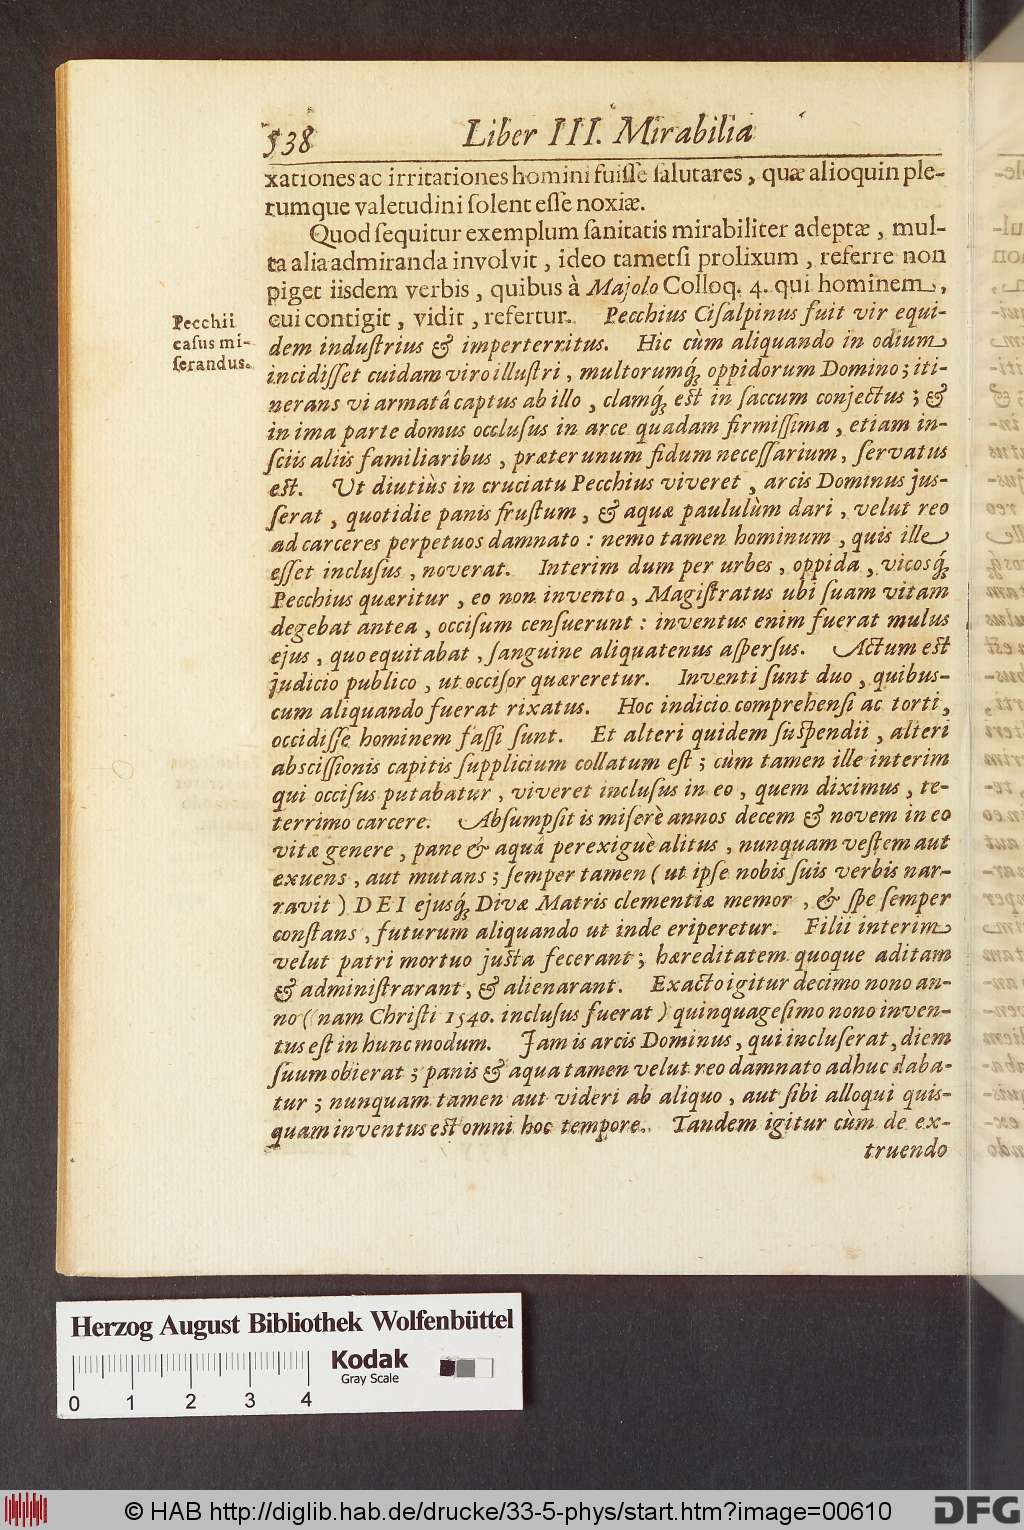 538 Liber III. Mirabilia
xationes ac irritationes homini fuiſſe ſalutares, quæ alioquin ple-
rumque valetudini ſolent eſſe noxiæ.
Quod ſequitur exemplum ſanitatis mirabiliter adeptæ, mul-
ta alia admiranda involvit, ideo tametſi prolixum, referre non
piget iisdem verbis, quibus à Majolo Colloq. 4. qui hominem,
cui contigit, vidit, refertur. Pecchius Ciſalpinus fuit vir equi-
Pecchii
caſus mi-
ſerandus.
dem induſtrius & imperterritus. Hic cùm aliquando in odium
incidiſſet cuidam viro illuſtri, multorumq́; oppidorum Domino; iti-
nerans vi armatâ captus ab illo, clamq́; eſt in ſaccum conjectus; &
in ima parte domus occluſus in arce quadam firmiſſima, etiam in-
ſciis aliis familiaribus, præter unum fidum neceſſarium, ſervatus
eſt. Ut diutiùs in cruciatu Pecchius viveret, arcis Dominus juſ-
ſerat, quotidie panis fruſtum, & aquæ paululùm dari, velut reo
ad carceres perpetuos damnato: nemo tamen hominum, quis ille
eſſet incluſus, noverat. Interim dum per urbes, oppida, vicosq́;
Pecchius quæritur, eo non invento, Magiſtratus ubi ſuam vitam
degebat antea, occiſum cenſuerunt: inventus enim fuerat mulus
ejus, quo equitabat, ſanguine aliquatenus aſperſus. Actum eſt
judicio publico, ut occiſor quæreretur. Inventi ſunt duo, quibus-
cum aliquando fuerat rixatus. Hoc indicio comprehenſi ac torti,
occidiſſe hominem faſſi ſunt. Et alteri quidem ſuſpendii, alteri
abſciſſionis capitis ſupplicium collatum eſt; cùm tamen ille interim
qui occiſus putabatur, viveret incluſus in eo, quem diximus, te-
terrimo carcere. Abſumpſit is miſerè annos decem & novem in eo
vitæ genere, pane & aquâ perexiguè alitus, nunquam veſtem aut
exuens, aut mutans; ſemper tamen (ut ipſe nobis ſuis verbis nar-
ravit) DEI ejusq́; Divæ Matris clementiæ memor, & ſpe ſemper
conſtans, futurum aliquando ut inde eriperetur. Filii interim
velut patri mortuo juſta fecerant; hæreditatem quoque aditam
& adminiſtrarant, & alienarant. Exacto igitur decimo nono an-
no (nam Chriſti 1540. incluſus fuerat) quinquageſimo nono inven-
tus eſt in hunc modum. Jam is arcis Dominus, qui incluſerat, diem
ſuum obierat; panis & aqua tamen velut reo damnato adhuc daba-
tur; nunquam tamen aut videri ab aliquo, aut ſibi alloqui quis-
quam inventus eſt omni hoc tempore. Tandem igitur cùm de ex-
truendo
Herzog August Bibliothek Wolfenbüttel
Kodak
Gray Scale
0 1 2 3 4
© HAB http://diglib.hab.de/drucke/33-5-phys/start.htm?image=00610
DFG